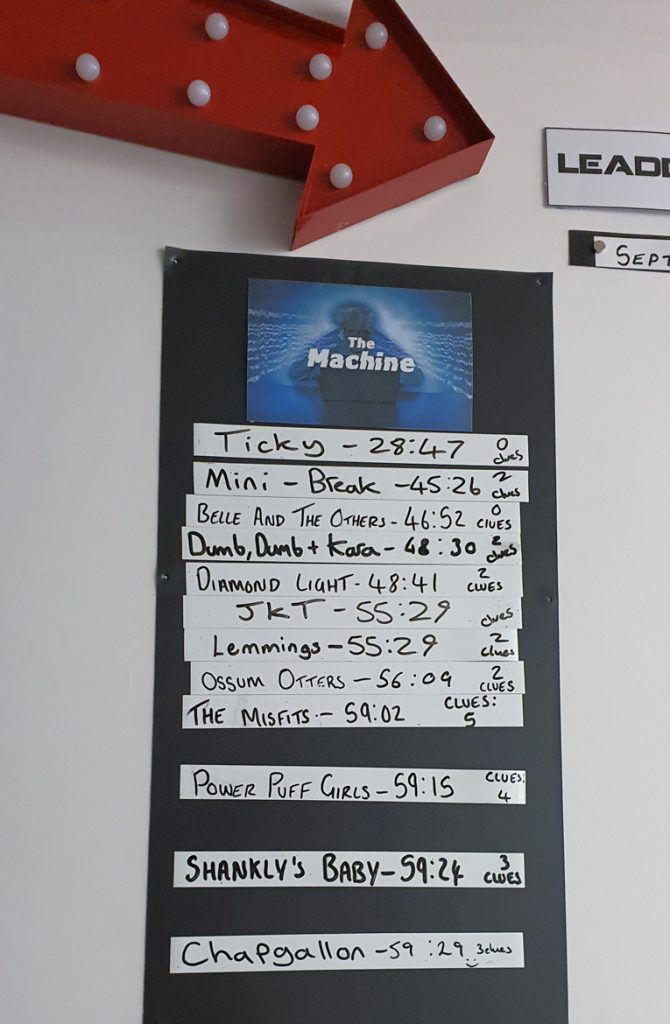 LEADE
SEPT
The
Machine
Ticky - 28:47 0 clues
Mini - Break - 45:26 2 clues
BELLE AND THE OTHERS - 46:52 0 CLUES
Dumb, Dumb + Kara - 48:30 2 clues
DIAMOND LIGHT - 48:41 2 CLUES
JKT - 55:29 clues
Lemmings - 55:29 2 clues
OSSUM OTTERS - 56:09 2 CLUES
THE MISFITS - 59:02 CLUES: 5
POWER PUFF GIRLS - 59:15 CLUES: 4
SHANKLY'S BABY - 59:24 3 CLUES
Chapgallon - 59:29 3 clues